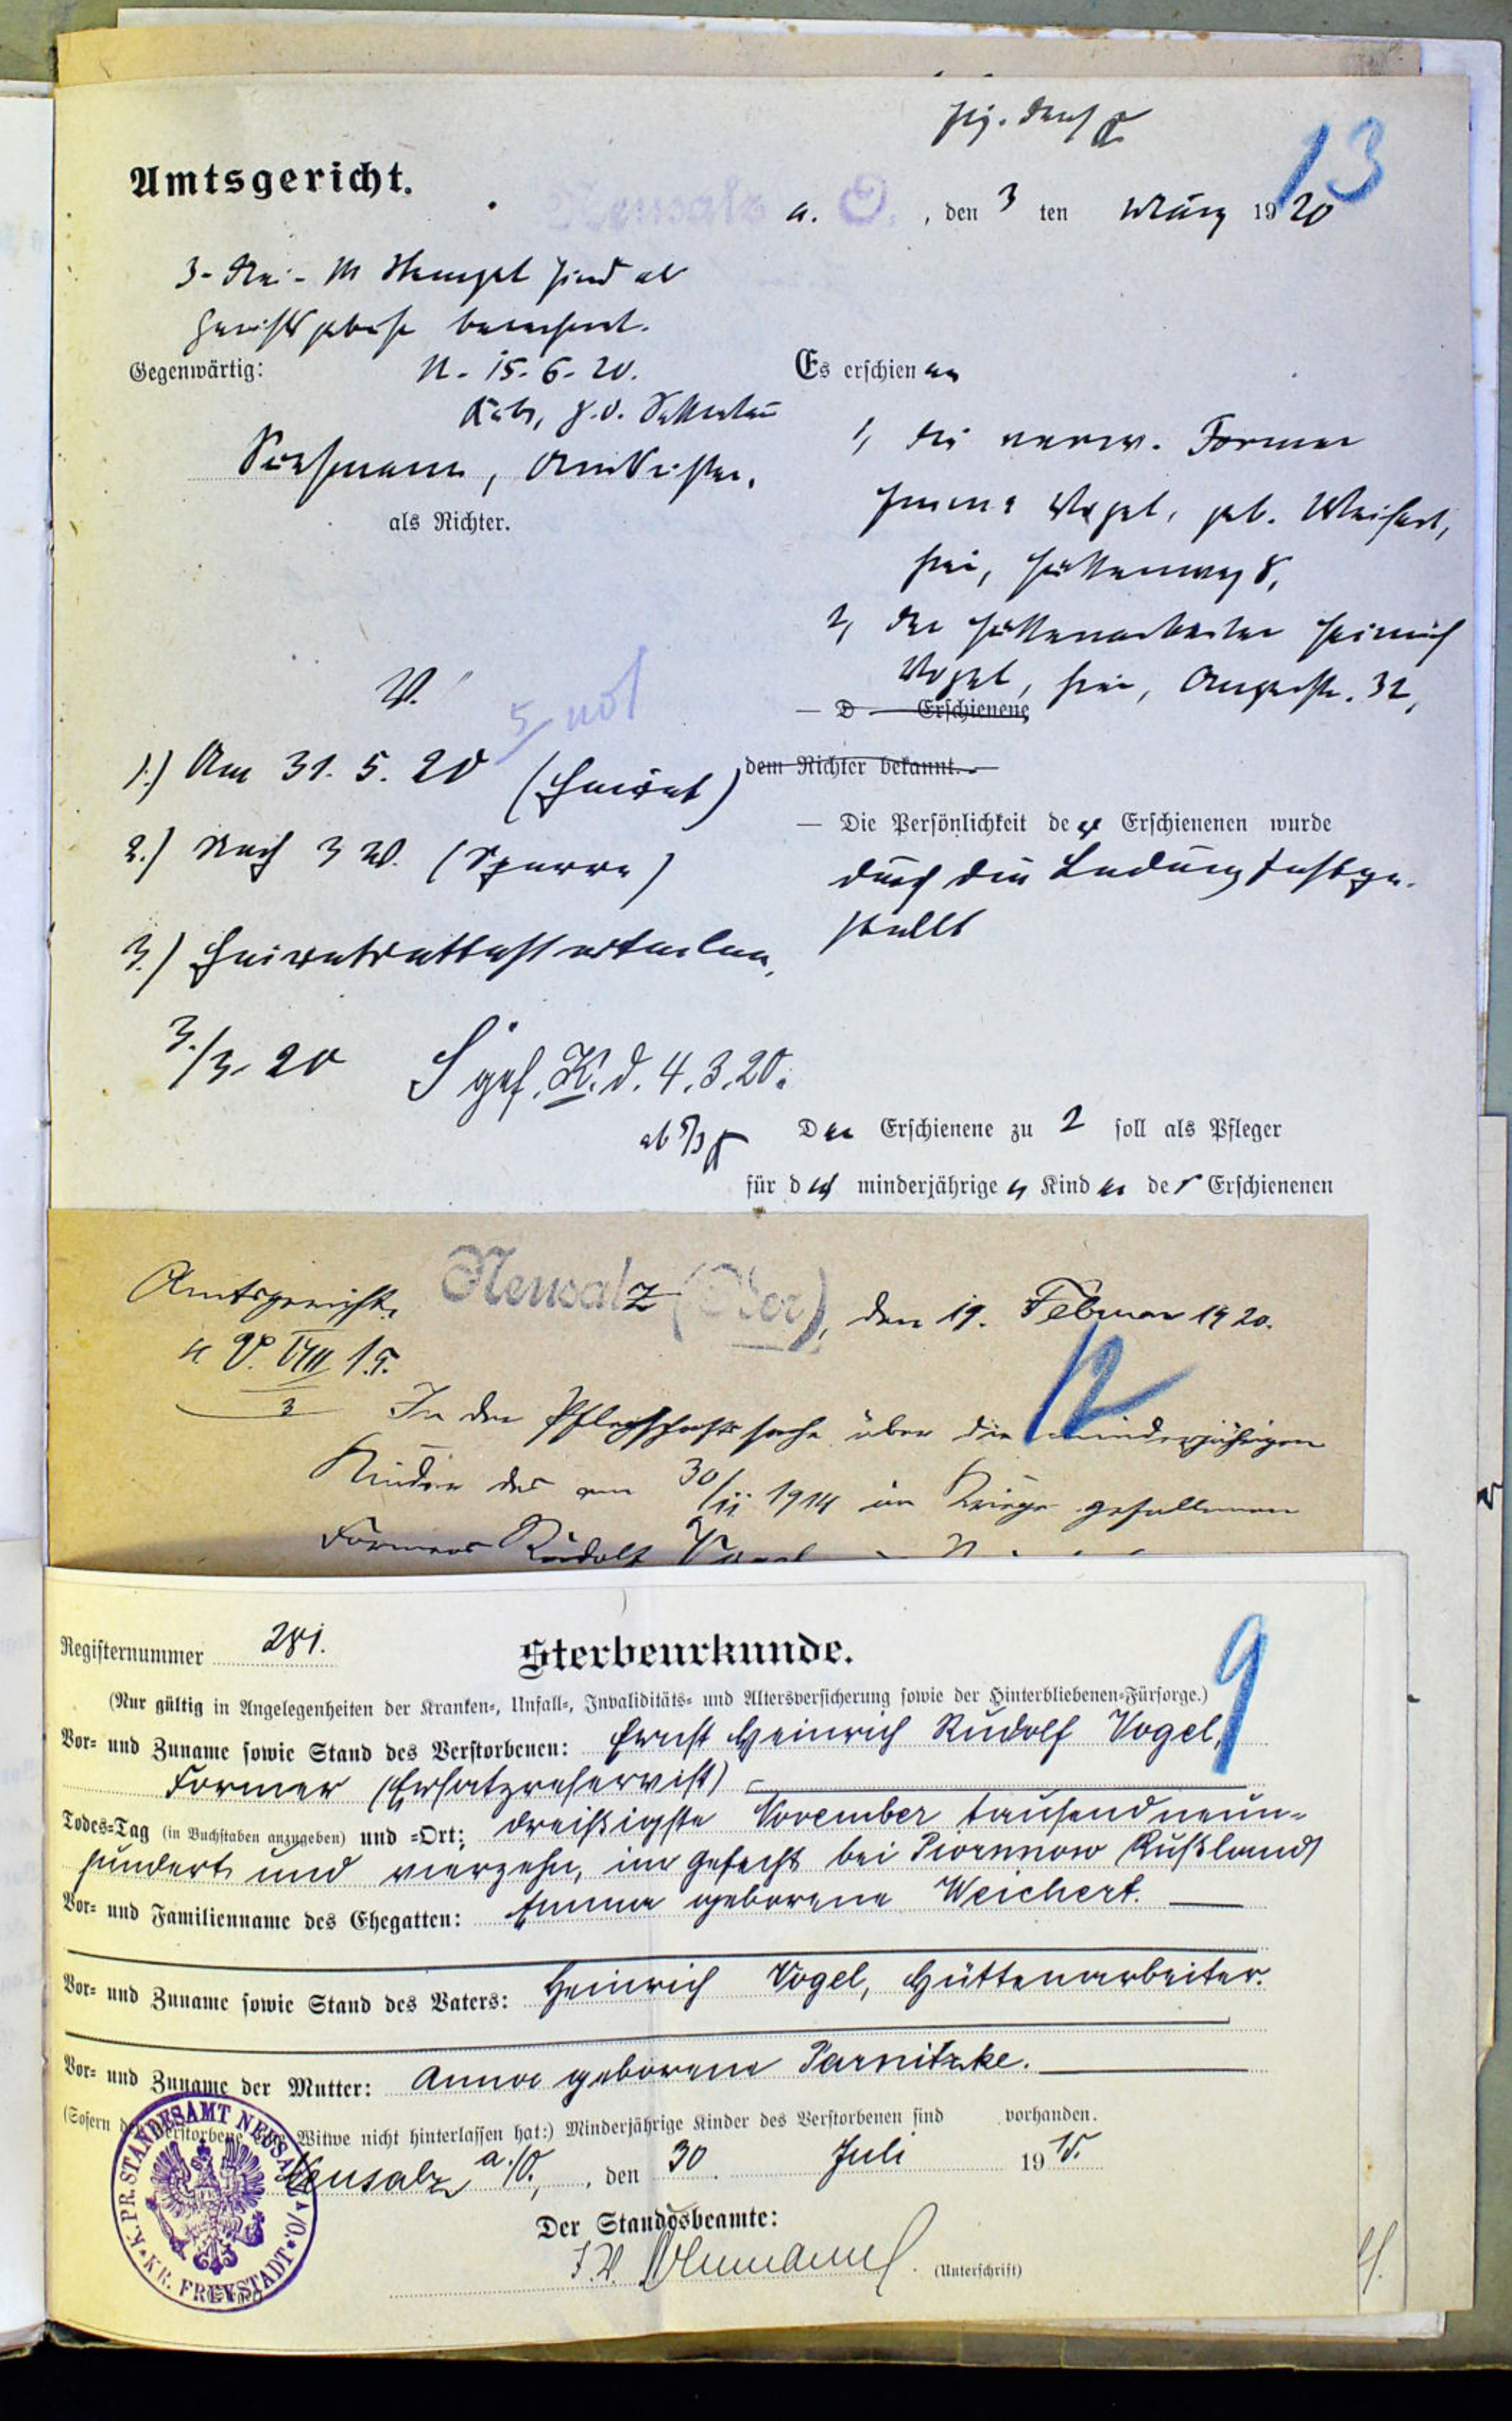 13
Amtsgericht.
Neusalz a. O., den 3 ten März 1920
3 M Stempel sind als
berechnet.
N. 15. 6. 20.
Gegenwärtig:
Es erschienen
Amtsrichter,
als Richter.
1, die verw. Former
Emma Vogel, geb. Weichert,
hier, Hüttenweg 8,
2, der Hüttenarbeiter Heinrich
Vogel, hier, Auguststr. 32,
— D — Erschienene
dem Richter bekannt.
V.
1.) Am 31. 5. 20 (Heirat)
2.) Nach 3 W. (Sperre)
3.) Heiratsattest erteilen,
3./3. 20
gef. K. d. 4. 3. 20.
ab 5/3
— Die Persönlichkeit der Erschienenen wurde
durch die Ladung festge-
stellt
Der Erschienene zu 2 soll als Pfleger
für die minderjährigen Kinder der Erschienenen
Amtsgericht. Neusalz (Oder), den 19. Februar 1920.
12
V. VIII 15.
3
In der Pflegschaftssache über die minderjährigen
Kinder des am 30/11 1914 im Kriege gefallenen
Formers Rudolf Vogel
9
Registernummer 281.
Sterbeurkunde.
(Nur gültig in Angelegenheiten der Kranken-, Unfall-, Invaliditäts- und Altersversicherung sowie der Hinterbliebenen-Fürsorge.)
Vor- und Zuname sowie Stand des Verstorbenen: Ernst Heinrich Rudolf Vogel,
Former (Ersatzreservist)
Todes-Tag (in Buchstaben anzugeben) und -Ort: dreißigste November tausendneun-
hundert und vierzehn, im Gefecht bei Piorunow Rußland
Vor- und Familienname des Ehegatten: Emma geborene Weichert.
Vor- und Zuname sowie Stand des Vaters: Heinrich Vogel, Hüttenarbeiter.
Vor- und Zuname der Mutter: Anna geborene Parnitzke.
(Sofern der Verstorbene eine Witwe nicht hinterlassen hat:) Minderjährige Kinder des Verstorbenen sind vorhanden.
Neusalz a./O., den 30. Juli 1915.
Der Standesbeamte:
I. V.
(Unterschrift)
K. PR. STANDESAMT NEUSALZ A/O. * KR. FREYSTADT *